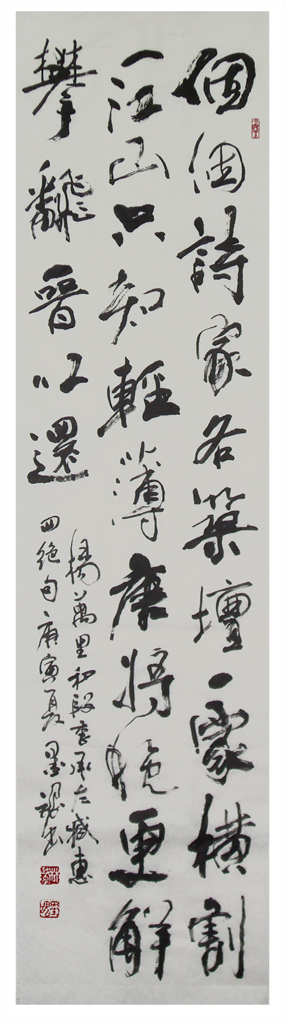 個個詩家各築壇一家橫割
一江山只知輕薄唐將晚更解
攀飜晉以還
楊萬里和段季承左藏惠
四絕句庚寅夏墨書